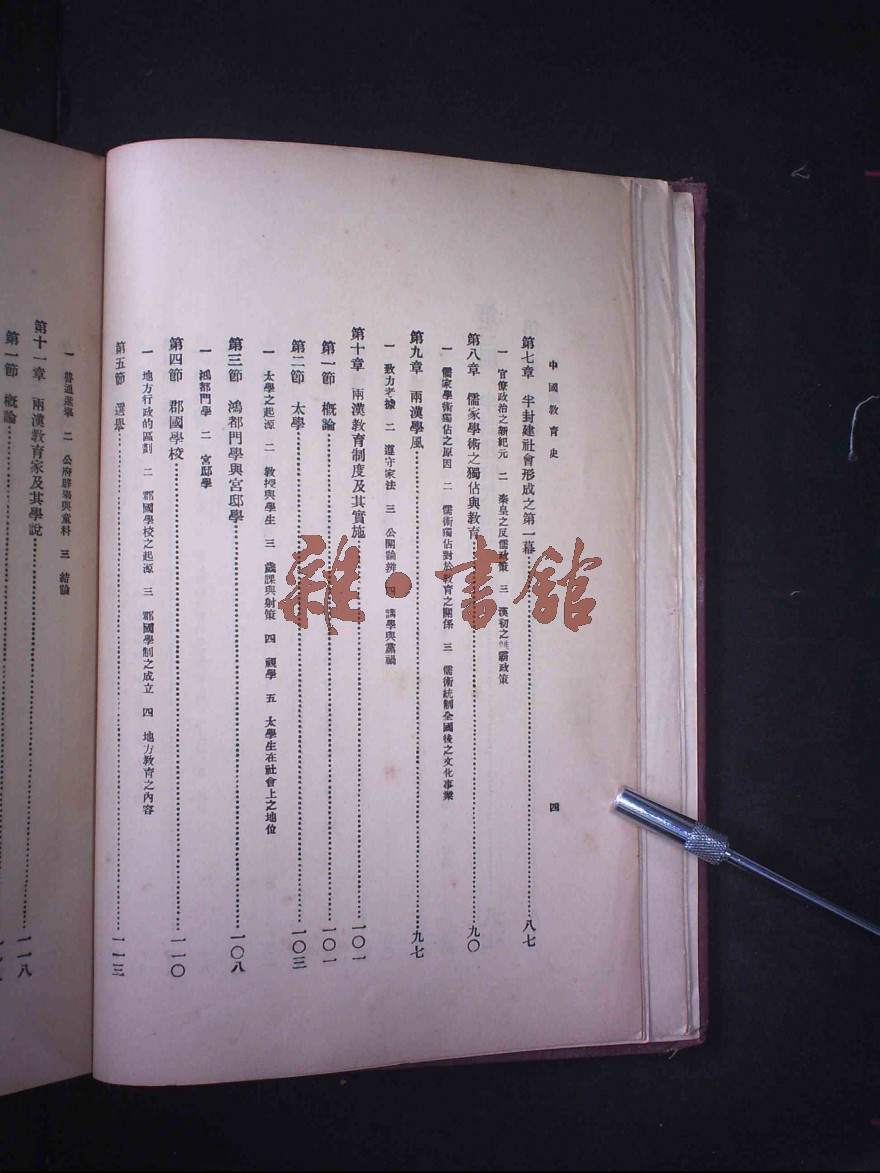 中國教育史
四
第七章 半封建社會形成之第一幕……八七
一 官僚政治之新紀元 二 秦皇之反儒政策 三 漢初之 霸政策
第八章 儒家學術之獨佔與教育……九〇
一 儒家學術獨佔之原因 二 儒術獨佔對於教育之關係 三 儒術統制全國後之文化事業
第九章 兩漢學風……九七
一 致力考據 二 遵守家法 三 公開論辨 四 講學與黨禍
第十章 兩漢教育制度及其實施……一〇一
第一節 概論……一〇一
第二節 太學……一〇三
一 太學之起源 二 教授與學生 三 歲課與射策 四 視學 五 太學生在社會上之地位
第三節 鴻都門學與宮邸學……一〇八
一 鴻都門學 二 宮邸學
第四節 郡國學校……一一〇
一 地方行政的區劃 二 郡國學校之起源 三 郡國學制之成立 四 地方教育之內容
第五節 選舉……一一三
一 普通選舉 二 公府辟舉與童科 三 結論
第十一章 兩漢教育家及其學說……一一八
第一節 概論……
雜·書館